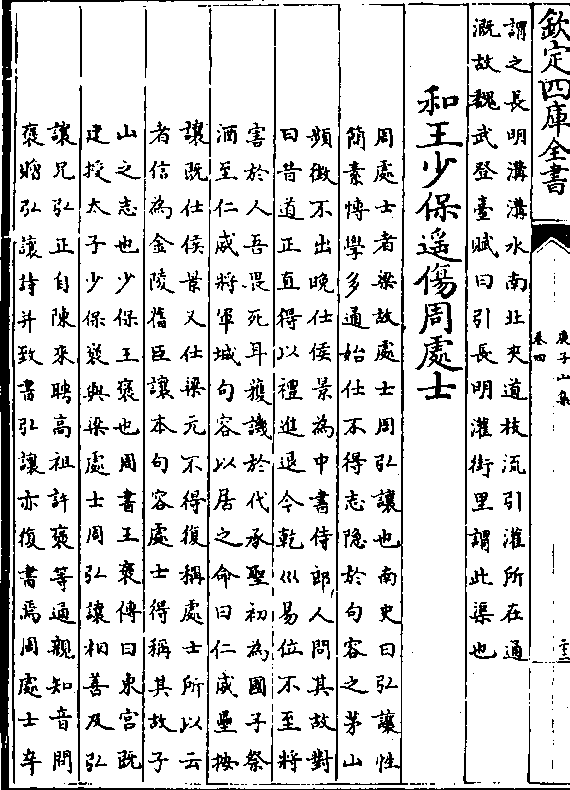 欽定四庫全書
庾子山集
卷四
謂之長明溝溝水南北夾道枝流引灌所在通
溉故魏武登臺賦曰引長明灌街里謂此渠也
和王少保遥傷周處士
周處士者梁故處士周弘讓也南史曰弘讓性
簡素博學多通始仕不得志隐於句容之茅山
頻徴不出晚仕侯景為中書侍郎人問其故對
曰昔道正直得以禮進退今乾巛易位不至將
害於人吾畏死耳獲譏於代承聖初為國子祭
酒至仁威將軍城句容以居之命曰仁威壘按
讓既仕侯景又仕梁元不得復稱處士所以云
者信為金陵舊臣讓本句容處士得稱其故子
山之志也少保王褒也周書王褒傳曰東宫既
建授太子少保褒與梁處士周弘讓相善及弘
讓兄弘正自陳來聘高祖許褒等通親知音問
褒贈弘讓詩并致書弘讓亦復書焉周處士卒